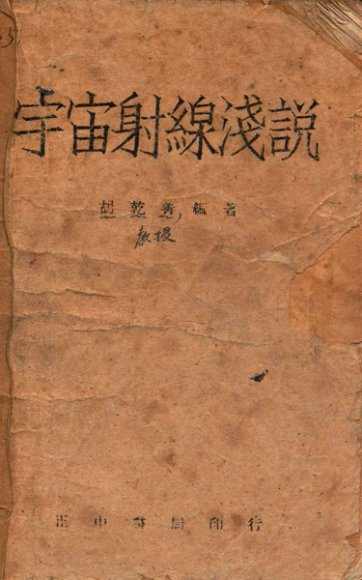 宇宙射線淺說
胡乾善編著
教授
正中書局印行